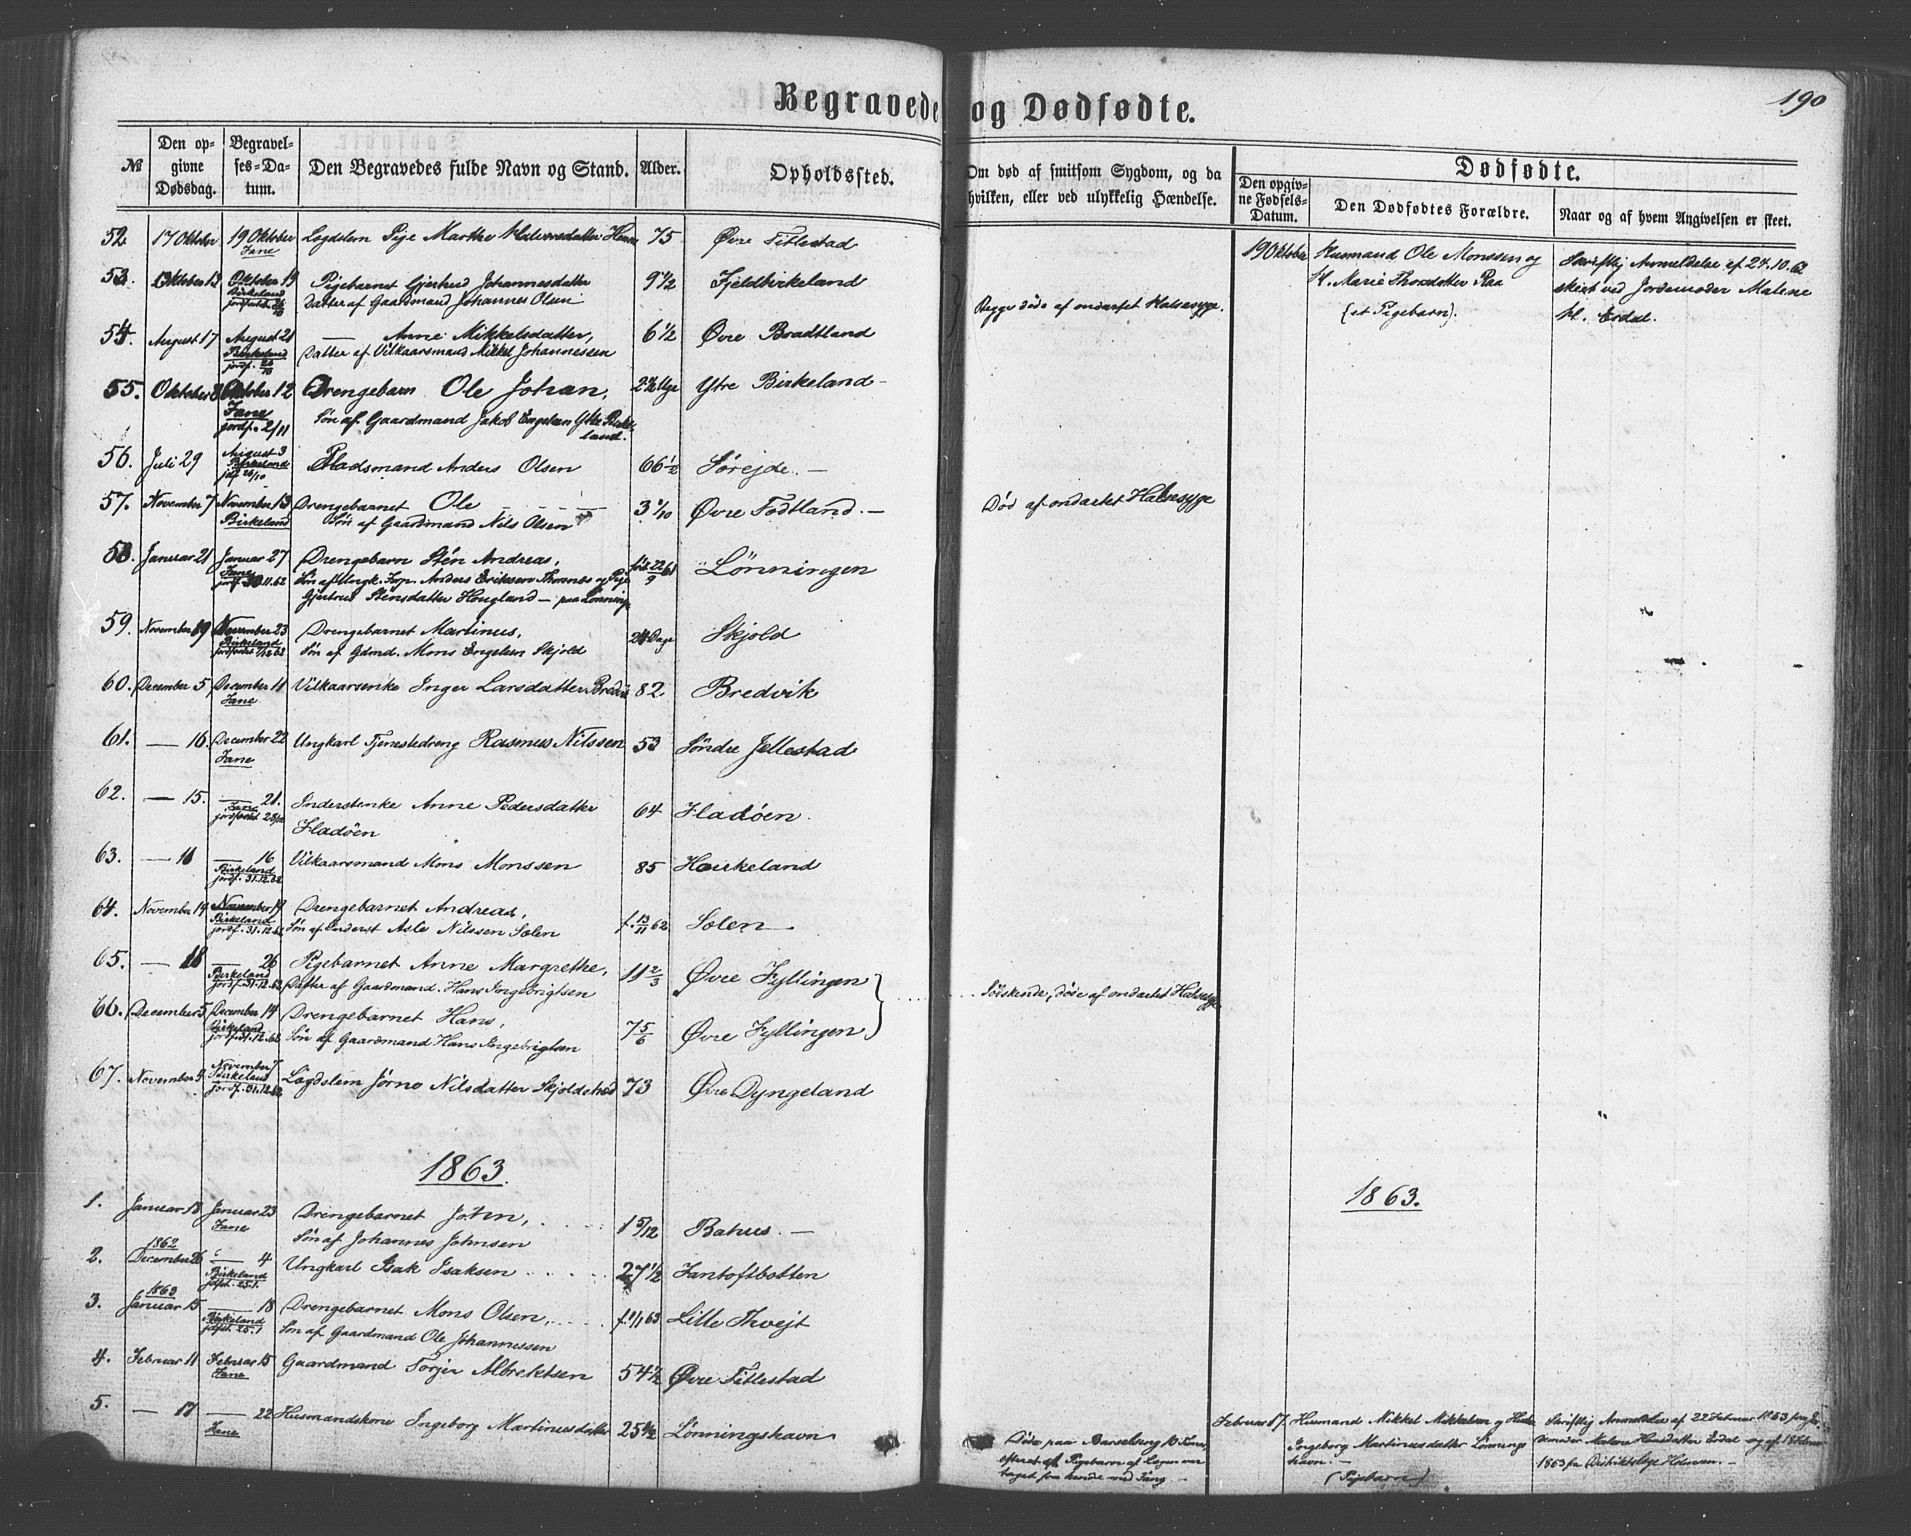 Begravede og Dødfødte.
190
№
Den opgivne Dødsdag.
Begravelses-Datum.
Den Begravedes fulde Navn og Stand.
Alder.
Opholdssted.
Om død af smitsom Sygdom, og da hvilken, eller ved ulykkelig Hændelse.
Dødfødte.
Den opgivne Fødsels-Datum.
Den Dødfødtes Forældre.
Naar og af hvem Angivelsen er skeet.
52. 17 Oktober 19 Oktober Lægdslem Pige Marthe Halvorsdatter 75 Øvre Titlestad
Fane
53. Oktober 13 Oktober 19 Pigebarnet Gjertrud Johannesdatter 9 1/2 Fjeldbirkeland
Birkeland
Datter af Gaardmand Johannes Olsen
Begge døde af ondartet Halssyge.
54. August 17 August 21 — Anne Mikkelsdatter, 6 1/2 Øvre Bradtland
Birkeland
Datter af Vilkaarsmand Mikkel Johannessen
55. Oktober 8 Oktober 12 Drengebarn Ole Johan, 2 1/2 Uge Ytre Birkeland
Fane
jordf. 2/11
Søn af Gaardmand Jakob Engelsen Ytre Birkeland.
56. Juli 29 August 3 Pladsmand Anders Olsen 66 1/2 Sørejde. —
Birkeland
57. November 7 November 13 Drengebarnet Ole 3 1/10 Øvre Fodtland. — Død af ondartet Halssyge
Birkeland
Søn af Gaardmand Nils Olsen
58. Januar 21 Januar 27 Drengebarn Stén Andreas, født 22/9 61 Lønningen
Fane
Søn af Ungk. Anders Eriksen og Pige
Gjertrud Stensdatter Hougland — paa Lønningen
59. November 19 November 23 Drengebarnet Martinus, 24 Dage Skjold
Birkeland
Søn af Gdmd. Mons Engelsen Skjold
60. December 5 December 11 Vilkaarsenke Inger Larsdatter Bredvik 82. Bredvik
Fane
61. — 16. December 22 Ungkarl Tjenestedreng Rasmus Nilssen 53 Søndre Jellestad
Fane
62. — 15. — 21. Inderstenke Anne Pedersdatter 64 Fladöen.
Fane
Fladöen
63. — 11 — 16 Vilkaarsmand Mons Monssen 85 Haukeland
Birkeland
jordf. 31.12.62
64. November 14 November 19 Drengebarnet Andreas, f. 13/11 62 Solen —
Birkeland
jordf. 31.12.62
Søn af Inderst Asle Nilssen Solen
65. — 18 — 26 Pigebarnet Anne Margrethe, 11 2/3 Øvre Fyllingen
Birkeland
jordf. 31.12.62
Datter af Gaardmand Hans Ingebrigtsen
Søskende, døde af ondartet Halssyge
66. December 5 December 14 Drengebarnet Hans, 7 5/6 Øvre Fyllingen
Birkeland
jordf. 31.12.62
Søn af Gaardmand Hans Ingebrigtsen
67. November 4 November 7 Lægdslem Jørne Nilsdatter Skjoldstad 73 Øvre Dyngeland
Birkeland
jordf. 31.12.62
19 Oktober Husmand Ole Monssen og
H. Marie Thorsdatter Raa
(et Pigebarn).
Skriftlig Anmeldelse af 24.10.62
skeet ved Jordemoder Malene
H. Erdal.
1863.
1863.
1. Januar 18 Januar 23 Drengebarnet John, 1 5/12 Bahus. —
Fane
Søn af Johannes Johnsen
1862
2. December 26 — 4 Ungkarl Isak Isaksen 27 1/2 Fantoftbotten
Birkeland
jdfst. 25.1.
1863
3. Januar 15 — 18 Drengebarnet Mons Olsen, f. 1/1 63 Lille Thvejt
Birkeland
jdfst. 25.1
Søn af Gaardmand Ole Johannessen
4. Februar 11 Februar 15 Gaardmand Torjer Albrektsen 54 1/2 Øvre Titlestad
Fane
5. — 17 — 22 Husmandskone Ingeborg Martinusdatter 25 1/2 Lønningshavn
Fane
Døde paa Barselseng 10 Timer
efterat et Pigebarn af Lægen var
taget fra hende ved Tang —
Februar 17. Husmand Mikkel Mikkelsen og Hustru
Ingeborg Martinusdatter Lønnings
havn. —
(Pigebarn)
Skriftlig Anmeldelse af 22 Februar 1863 fra Jor
demoder Malene Hansdatter Erdal og af 18 Februar
1863 fra Distriktslæge Holmsen. —